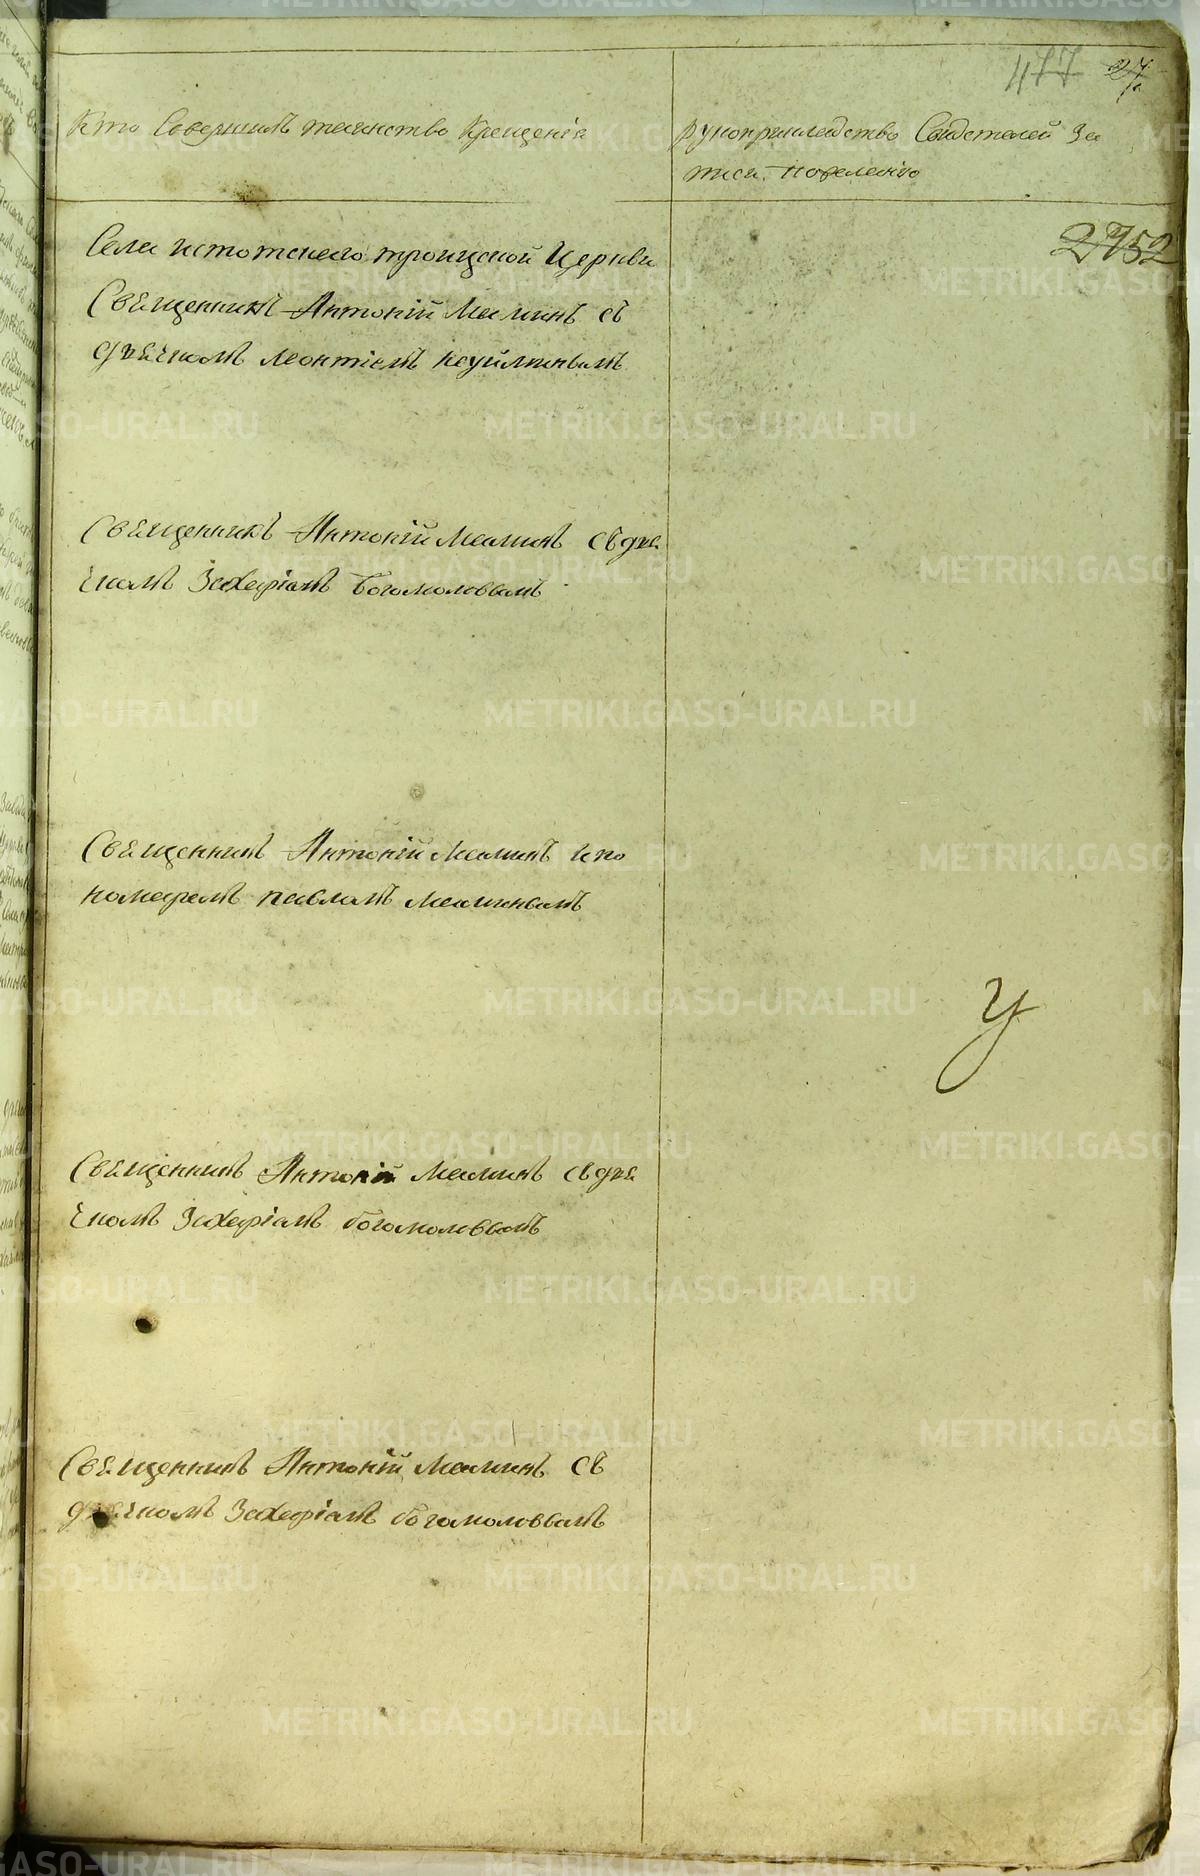 477 27
Кто Совершилъ таинство Крещенія
рукоприкладство Свидетелей За
писи. По желанію
2752
Села истотского троицкой Церкви
Священникъ Антоній Маминъ съ
дьячкомъ Леонтіемъ
Священникъ Антоній Маминъ съ дья
чкомъ Захаріамъ Богомоловвымъ
Священникъ Антоній Маминъ и по
номаремъ павломъ Маминвымъ
У
Священникъ Антоній Маминъ съ дья
чкомъ Захаріамъ богомоловвымъ
Священникъ Антоній Маминъ съ
дьячкомъ Захаріамъ богомоловвымъ
METRIKI.GASO-URAL.RU